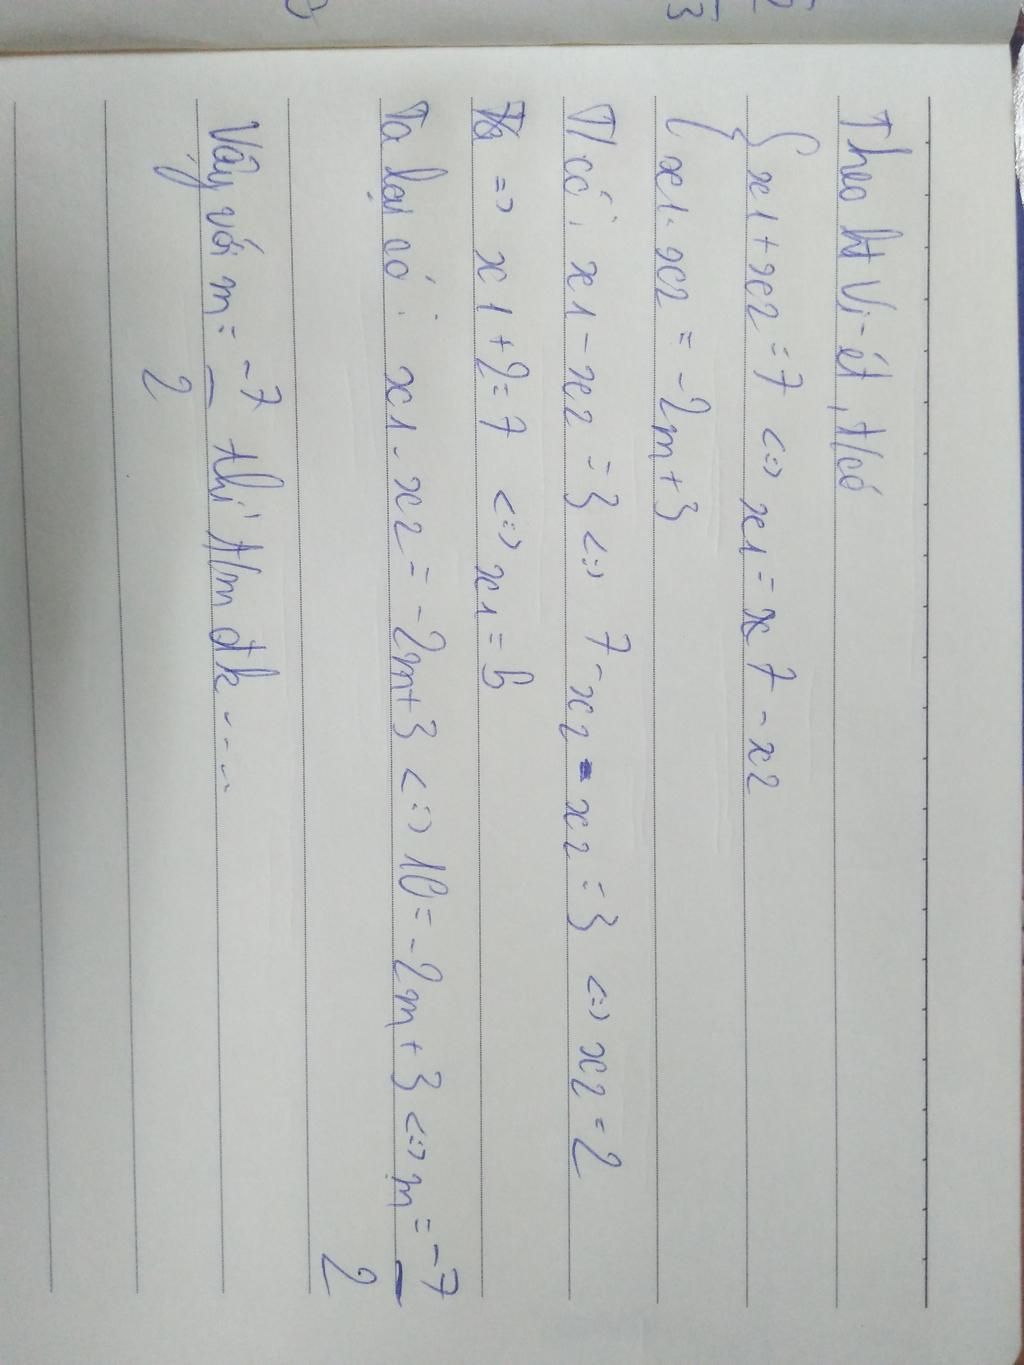 Theo ht Vi-ét, t/có
{ x1 + x2 = 7 <=> x1 = 7 - x2
x1 . x2 = -2m + 3
T/có: x1 - x2 = 3 <=> 7 - x2 - x2 = 3 <=> x2 = 2
=> x1 + 2 = 7 <=> x1 = 5
Ta lại có: x1 . x2 = -2m + 3 <=> 10 = -2m + 3 <=> m = -7/2
Vậy với m = -7/2 thì t/m đk ....